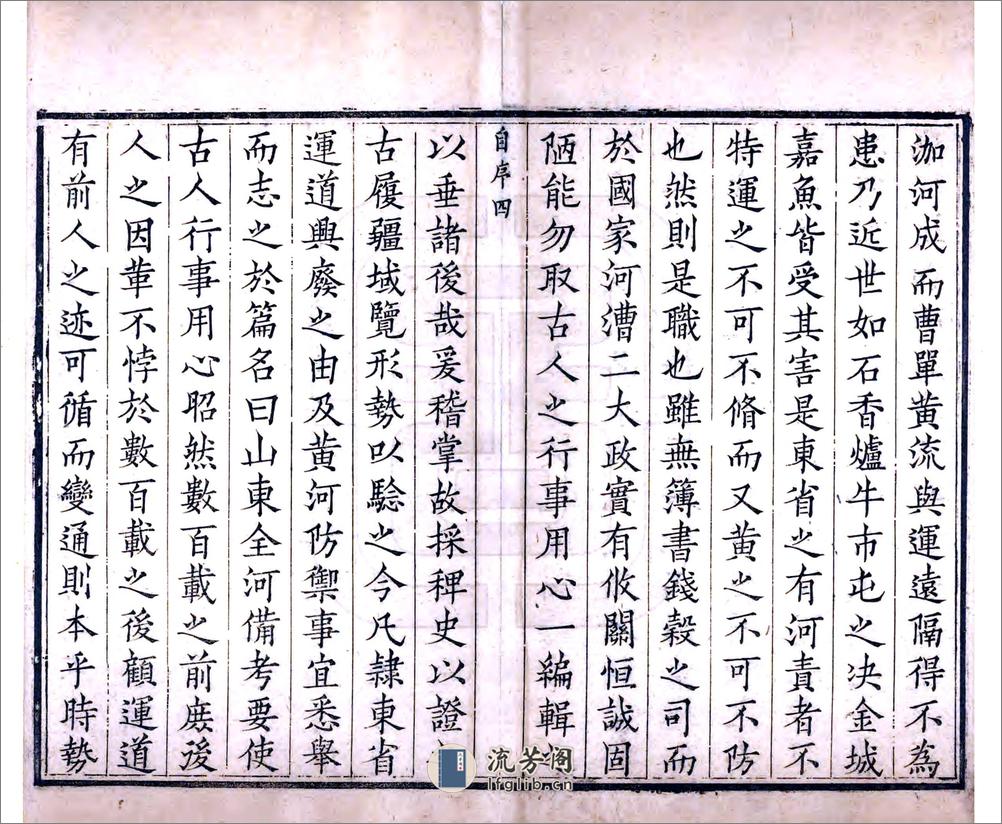 泇河成而曹單黃流與運遠隔得不為
患乃近世如石香爐牛市屯之决金城
嘉魚皆受其害是東省之有河責者不
特運之不可不脩而又黃之不可不防
也然則是職也雖無簿書錢穀之司而
於國家河漕二大政實有攸關恒誠固
陋能勿取古人之行事用心一編輯
自序四
以垂諸後哉爰稽掌故採稗史以證
古履疆域覽形勢以驗之今凡隷東省
運道興廢之由及黃河防禦事宜悉舉
而志之於篇名曰山東全河備考要使
古人行事用心昭然數百載之前庻後
人之因革不悖於數百載之後顧運道
有前人之迹可循而變通則本乎時勢
流芳閣
lfglib.cn